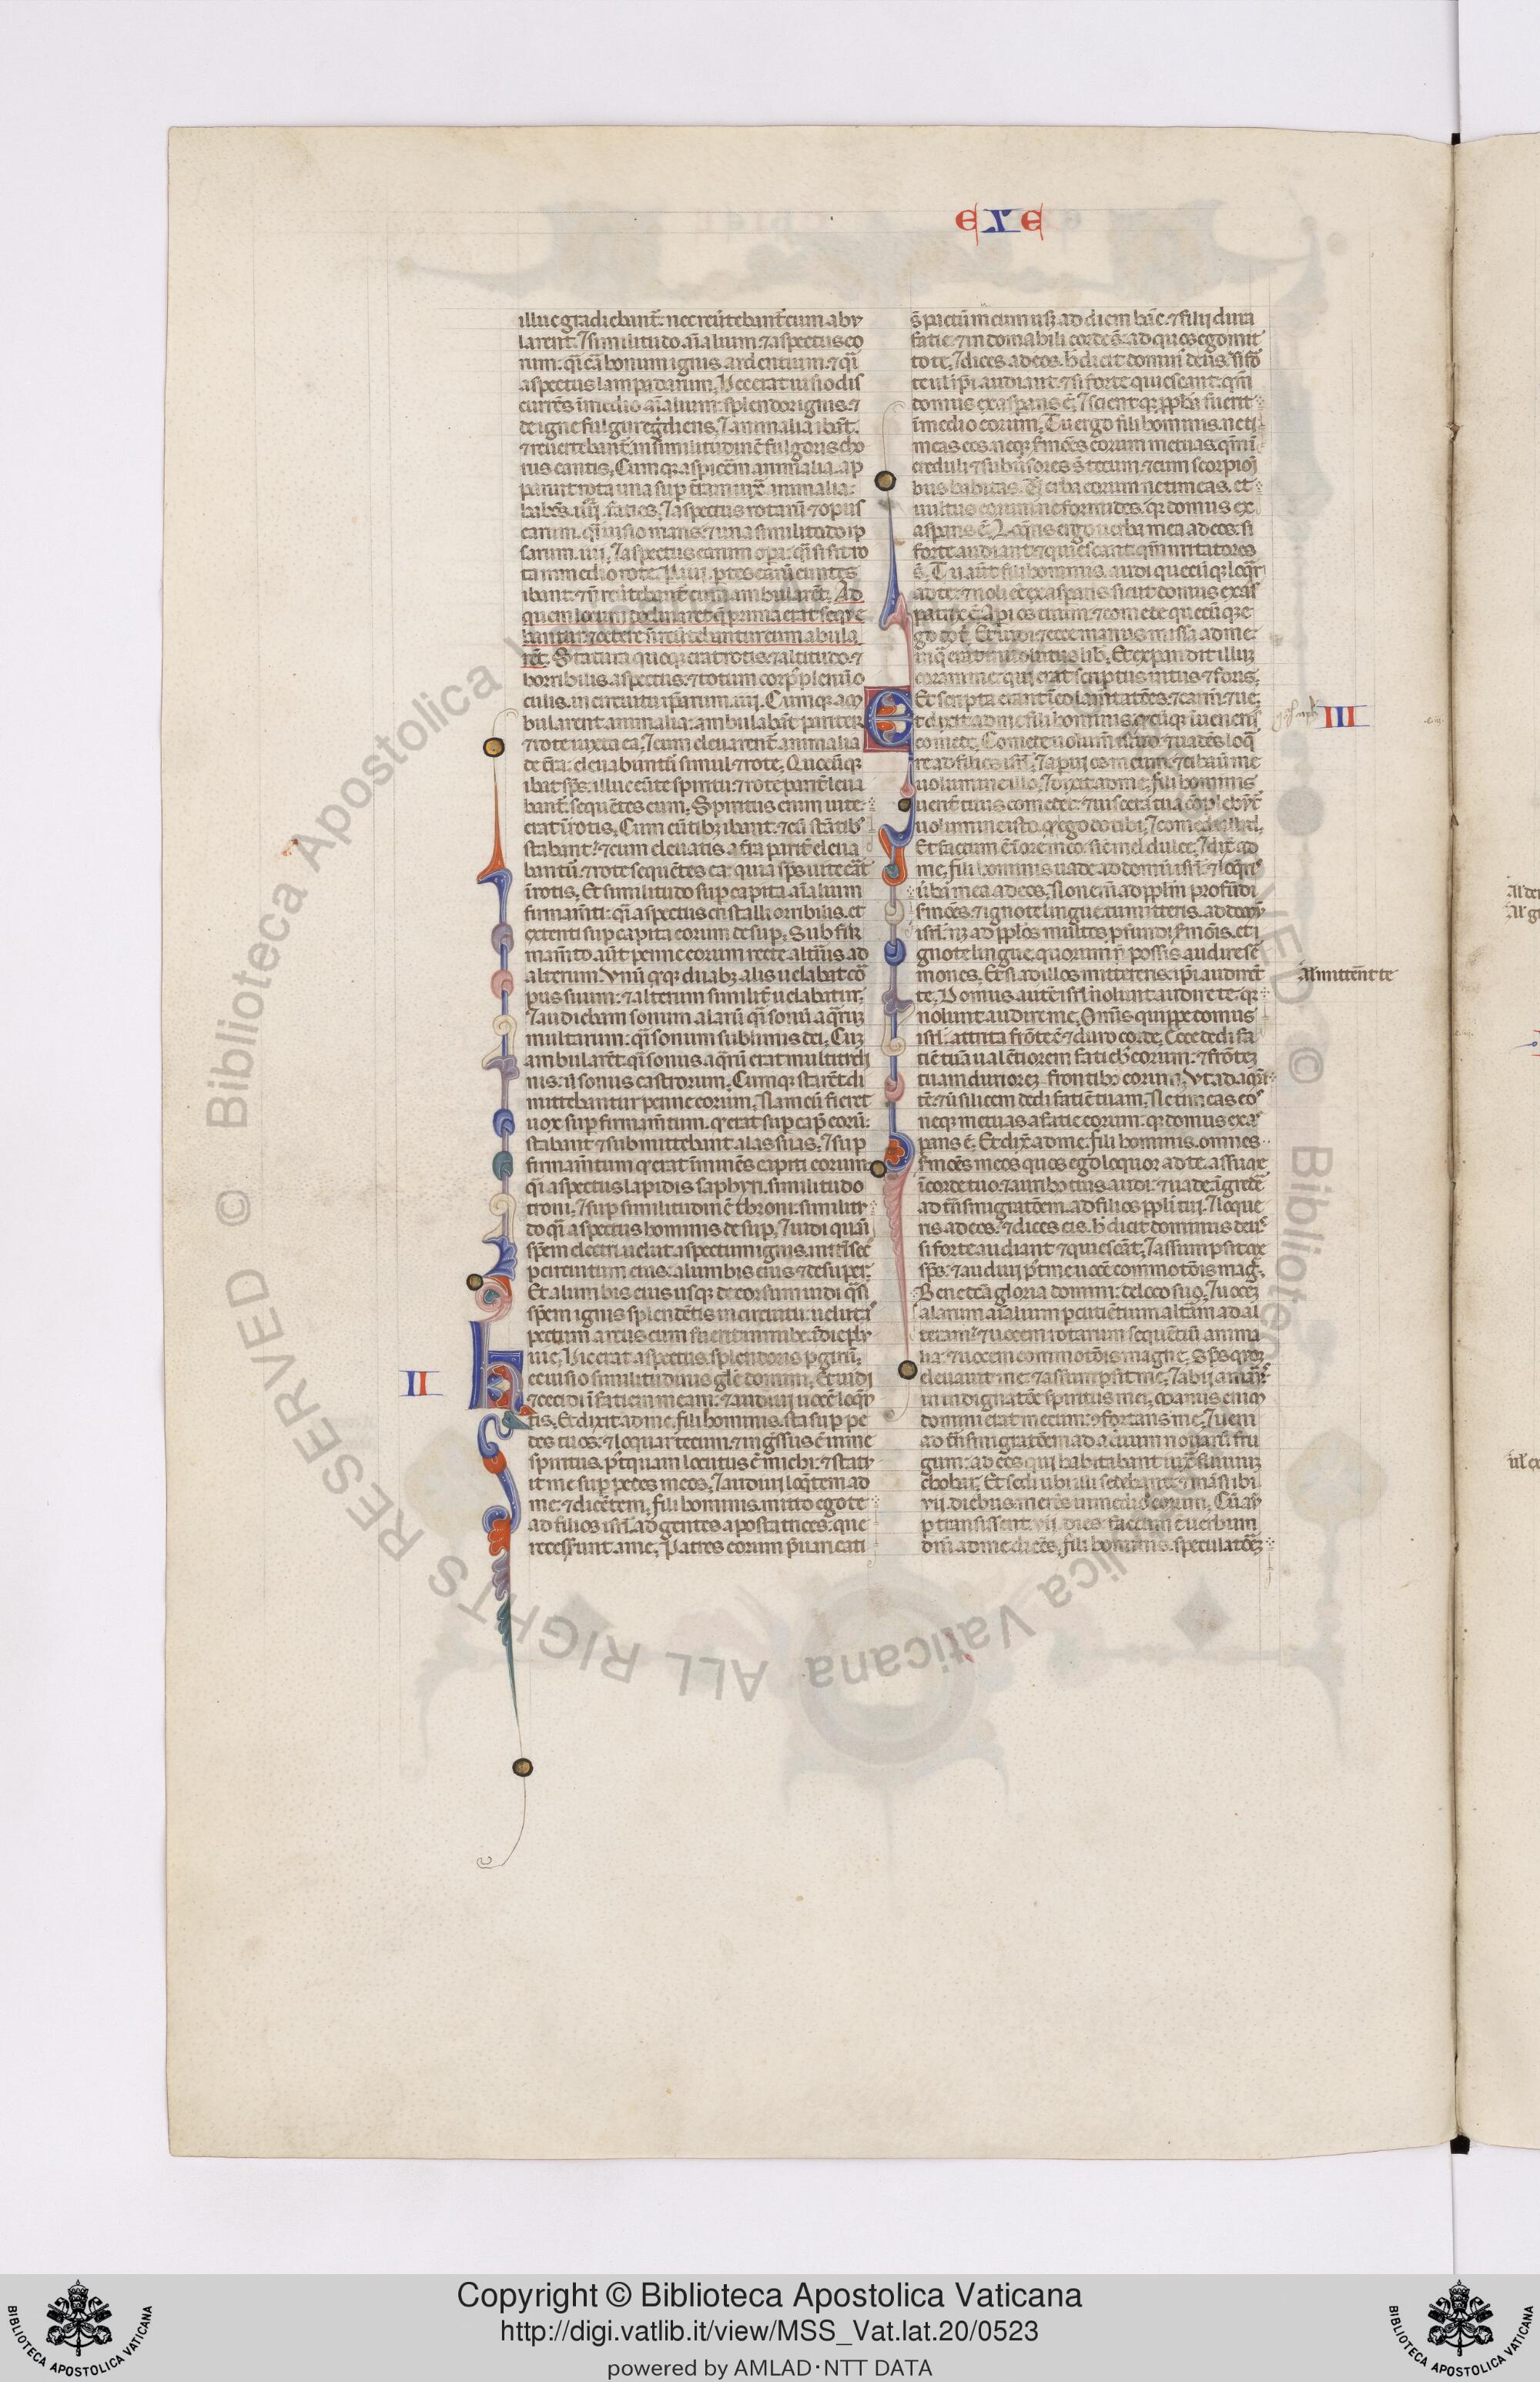 EZE
illuc gradiebant̄. nec reūtebant̄ cum aby
larent. Et similitudo aīalium. ⁊ aspectus eo
rum. qͣi cābonum ignis ardentium. ⁊ qͣi
aspectus lampadarum. Hec erat uisio dis
currēs ī medio aīalium. splendor ignis. ⁊
de igne fulgur eḡdiens. Et animalia ibāt.
⁊ reuertebant̄. in similitudinē fulgoris cho
rus cantis. Cumqꝫ aspicerem animalia. ap
paruit rota una sup t̄ram iuxͣ animalia.
habēs .iiij. facies. Et aspectus rotarū ⁊ opus
earum. qͣi uisio maris. ⁊ una similitudo ip
sarum .iiij. Et aspectus earum ⁊ opa. qͣi si sit ro
ta in medio rote. P .iiij. ptes earū euntes
ibant. ⁊ ñ reūtebant̄ cum ambularēt. Ad
quem locum declinaret q̄ prima erat seque
bantur. ⁊ cetere ñ reūtebantur cum abula
rēt. Statura quoqꝫ erat rotis. ⁊ altitudo. ⁊
horribilis aspectus. ⁊ totum corpꝰ plenū o
culis. in circuitu ip̄arum .iiij. Cumqꝫ am
bularent animalia. ambulabāt pariter
⁊ rote iuxta ea. Et cum eleuarent̄ animalia
de t̄ra. eleuabunt̄ simul ⁊ rote. Quocūqꝫ
ibat sp̄s. illuc eūte spiritu. ⁊ rote parit̄ leua
bant̄. sequētes eum. Spiritus enim uite
erat ī rotis. Cum eūtibꝫ ibant. ⁊ cū stātibꝫ
stabant. ⁊ cum eleuatis a t̄ra parit̄ eleua
bantū. ⁊ rote sequētes ea. quia sp̄s uite erāt
ī rotis. Et similitudo sup capita aīalium
firmam̄ti. qͣi aspectus cristalli orribilis. et
extenti sup capita eorum desup. Sub fir
mam̄to aūt penne eorum recte altius ad
alterum. Vnū qꝫqꝫ duabꝫ alis uelabat cor
pus suum. ⁊ alterum similit̄ uelabatur.
Et audiebam sonum alarū qͣi sonū aqͣruꝫ
multarum. qͣi sonum sublimis dei. Cuꝫ
ambularēt. qͣi sonus aqͣrū erat multitudi
nis. ū sonus castrorum. Cumqꝫ starēt di
mittebantur penne eorum. Nam cū fieret
uox sup firmam̄tum. qͦ erat sup capͣ eorū.
stabant ⁊ submittebant alas suas. Et sup
firmam̄tum qͦ erat īminēs capiti eorum
qͣi aspectus lapidis saphyri. similitudo
troni. Et sup similitudinē throni. similitu
do qͣi aspectus hominis desup. Et uidi quasi
spēm electri uelut aspectum ignis. intrīsec̄
p circuitum eius. a lumbis eius ⁊ desuper.
Et a lumbis eius usqꝫ deorsum uidi qͣsi
spēm ignis splendētis in circuitu. uelut as
pectum arcus cum fuerit in nube. ī die plu
uie. Hic erat aspectus splendoris p girū.
II
Hec uisio similitudinis glē domini. Et uidi
⁊ cecidi ī faciem meam. ⁊ audiui uocē loqn
tis. Et dixit ad me. fili hominis. sta sup pe
des tuos. ⁊ loquar tecum. ⁊ ingssus ē in me
spiritus. pꝰtquam locutus ē michi. ⁊ statu
it me sup pedes meos. Et audiui loqntem ad
me. ⁊ dicētem. fili hominis. mitto ego te
ad filios isrl̄. ad gentes apostatrices. que
recesserunt a me. Patres eorum p̄uaricati
s̄ pactū meum usqꝫ ad diem hāc. ⁊ filij dura
facie. ⁊ indomabili corde s̄. ad quos ego mit
to te. Et dices ad eos. h̄ dicit domin̄ deus. si for
te uel ip̄i audiant. ⁊ si forte quiescant. qm̄
domus exasp̄ans ē. Et scient qꝫ ppheta fuerit
ī medio eorum. Tu ergo fili hominis. ne ti
meas eos. neqꝫ s̄mōes eorum metuas. qm̄ in
creduli ⁊ subūsores s̄ tecum. ⁊ cum scorpioni
bus habitas. Verba eorum ne timeas. et
uultus eorum ne formides. qꝫ domus ex
asp̄ans ē. Loqris ergo uerba mea ad eos. si
forte audiant ⁊ quiescant. qm̄ irritatores
s̄. Tu aūt fili hominis. audi quecūqꝫ loqr̄
ad te. ⁊ noli eē exaspans sicut domus exas
patrix ē. Aperi os tuum. ⁊ comede quecūqꝫ e
go do t̄. Et uidi. ⁊ ecce manus missa ad me.
in qͣ erat inuolutus lib̄. Et expandit illuꝫ
coram me. qui erat scriptus intus ⁊ foris.
Et scripta erant ī eo lam̄tatōes. ⁊ carm̄. ⁊ ue.
III
Et dixit ad me. fili hominis. qͦcūqꝫ īueneris
comede. Comede uolum̄ istud. ⁊ uadēs loqͤ
re ad filios isrl̄. Et aperui os meum. ⁊ cibauit me
uolumine illo. Et dixit ad me. fili hominis
uenter tuus comedet. ⁊ uiscera tua cōplebūt̄
uolumine isto. qͦ ego do tibi. Et comedi illud.
Et factum ē ī ore meo. sic̄ mel dulce. Et dix̄ ad
me. fili hominis uade ad domū isrl̄. ⁊ loqͣris
ūba mea ad eos. Non eni ad pplm̄ profūdi
s̄mōes. ⁊ ignote lingue. tu mitteris. ad domū
isrl̄. neqꝫ ad pplos multos p̄fundi s̄mōis. et i
gnote lingue. quorum ñ possis audire ser
mones. Et si ad illos mittereris. ip̄i audirēt
Al' mittent te
te. Domus autē isrl̄ nolunt audire te. qꝫ
nolunt audire me. Omīs quippe domus
isrl̄. attrita frōte ē. ⁊ duro corde. Ecce dedi fa
ciē tuā ualētiorem faciebꝫ eorum. ⁊ frōteꝫ
tuam durioreꝫ frontibꝫ eorum. Vt adamā
tē. ⁊ ū silicem dedi faciē tuam. Ne timeas eos
neqꝫ metuas a facie eorum. qꝫ domus exas
pans ē. Et dix̄ ad me. fili hominis. omnes
s̄mōes meos quos ego loquor ad te. assume
ī corde tuo. ⁊ auribꝫ tuis audi. ⁊ uade. īgredē
ad trāsmigratōem. ad filios ppli tui. Et loque
ris ad eos. ⁊ dices eis. h̄ dicit dominus deus.
si forte audiant ⁊ quiescāt. Et assumpsit me
sp̄s. ⁊ audiui pꝰt me uocē commotōis maḡ.
Benedicta gloria domini. de loco suo. Et uoceꝫ
alarum aīalium pcutiētium altām ad al
teram. ⁊ uocem rotarum sequētiū anima
lia. ⁊ uocem commotōis magne. Sp̄s qꝫ
eleuauit me. ⁊ assumpsit me. Et abij amarꝰ
in indignatōe spiritus mei. Manus enim
domini erat mecum. ⁊fortans me. Et ueni
ad trāsmigratōem ad aceruum nouarū fru
gum. ad eos qui habitabant iuxͣ flumen
chobar. Et sedi ubi illi sedebant. ⁊ mansi ibi
.vij. diebus merēs in medio eorum. Cū aūt
ptransissent .vij. dies. factum ē uerbum
dn̄i ad me dicēs. fili hominis. speculatorē
Copyright © Biblioteca Apostolica Vaticana
http://digi.vatlib.it/view/MSS_Vat.lat.20/0523
powered by AMLAD·NTT DATA
BIBLIOTECA APOSTOLICA VATICANA
BIBLIOTECA APOSTOLICA VATICANA
© Biblioteca Apostolica Vaticana ALL RIGHTS RESERVED